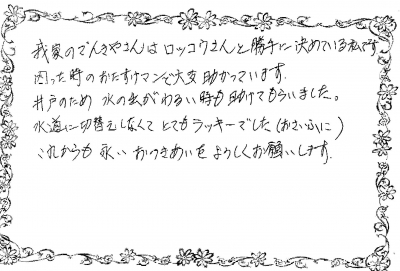 我家のでんきやさんはロッコウさんと勝手に決めている私です
困った時のおたすけマンで大変助かっています.
井戸のため 水の出がわるい時も助けてもらいました。
水道に切替えしなくて とてもラッキーでした(おさいふに)
これからも 永い おつきあいを よろしくお願いします.